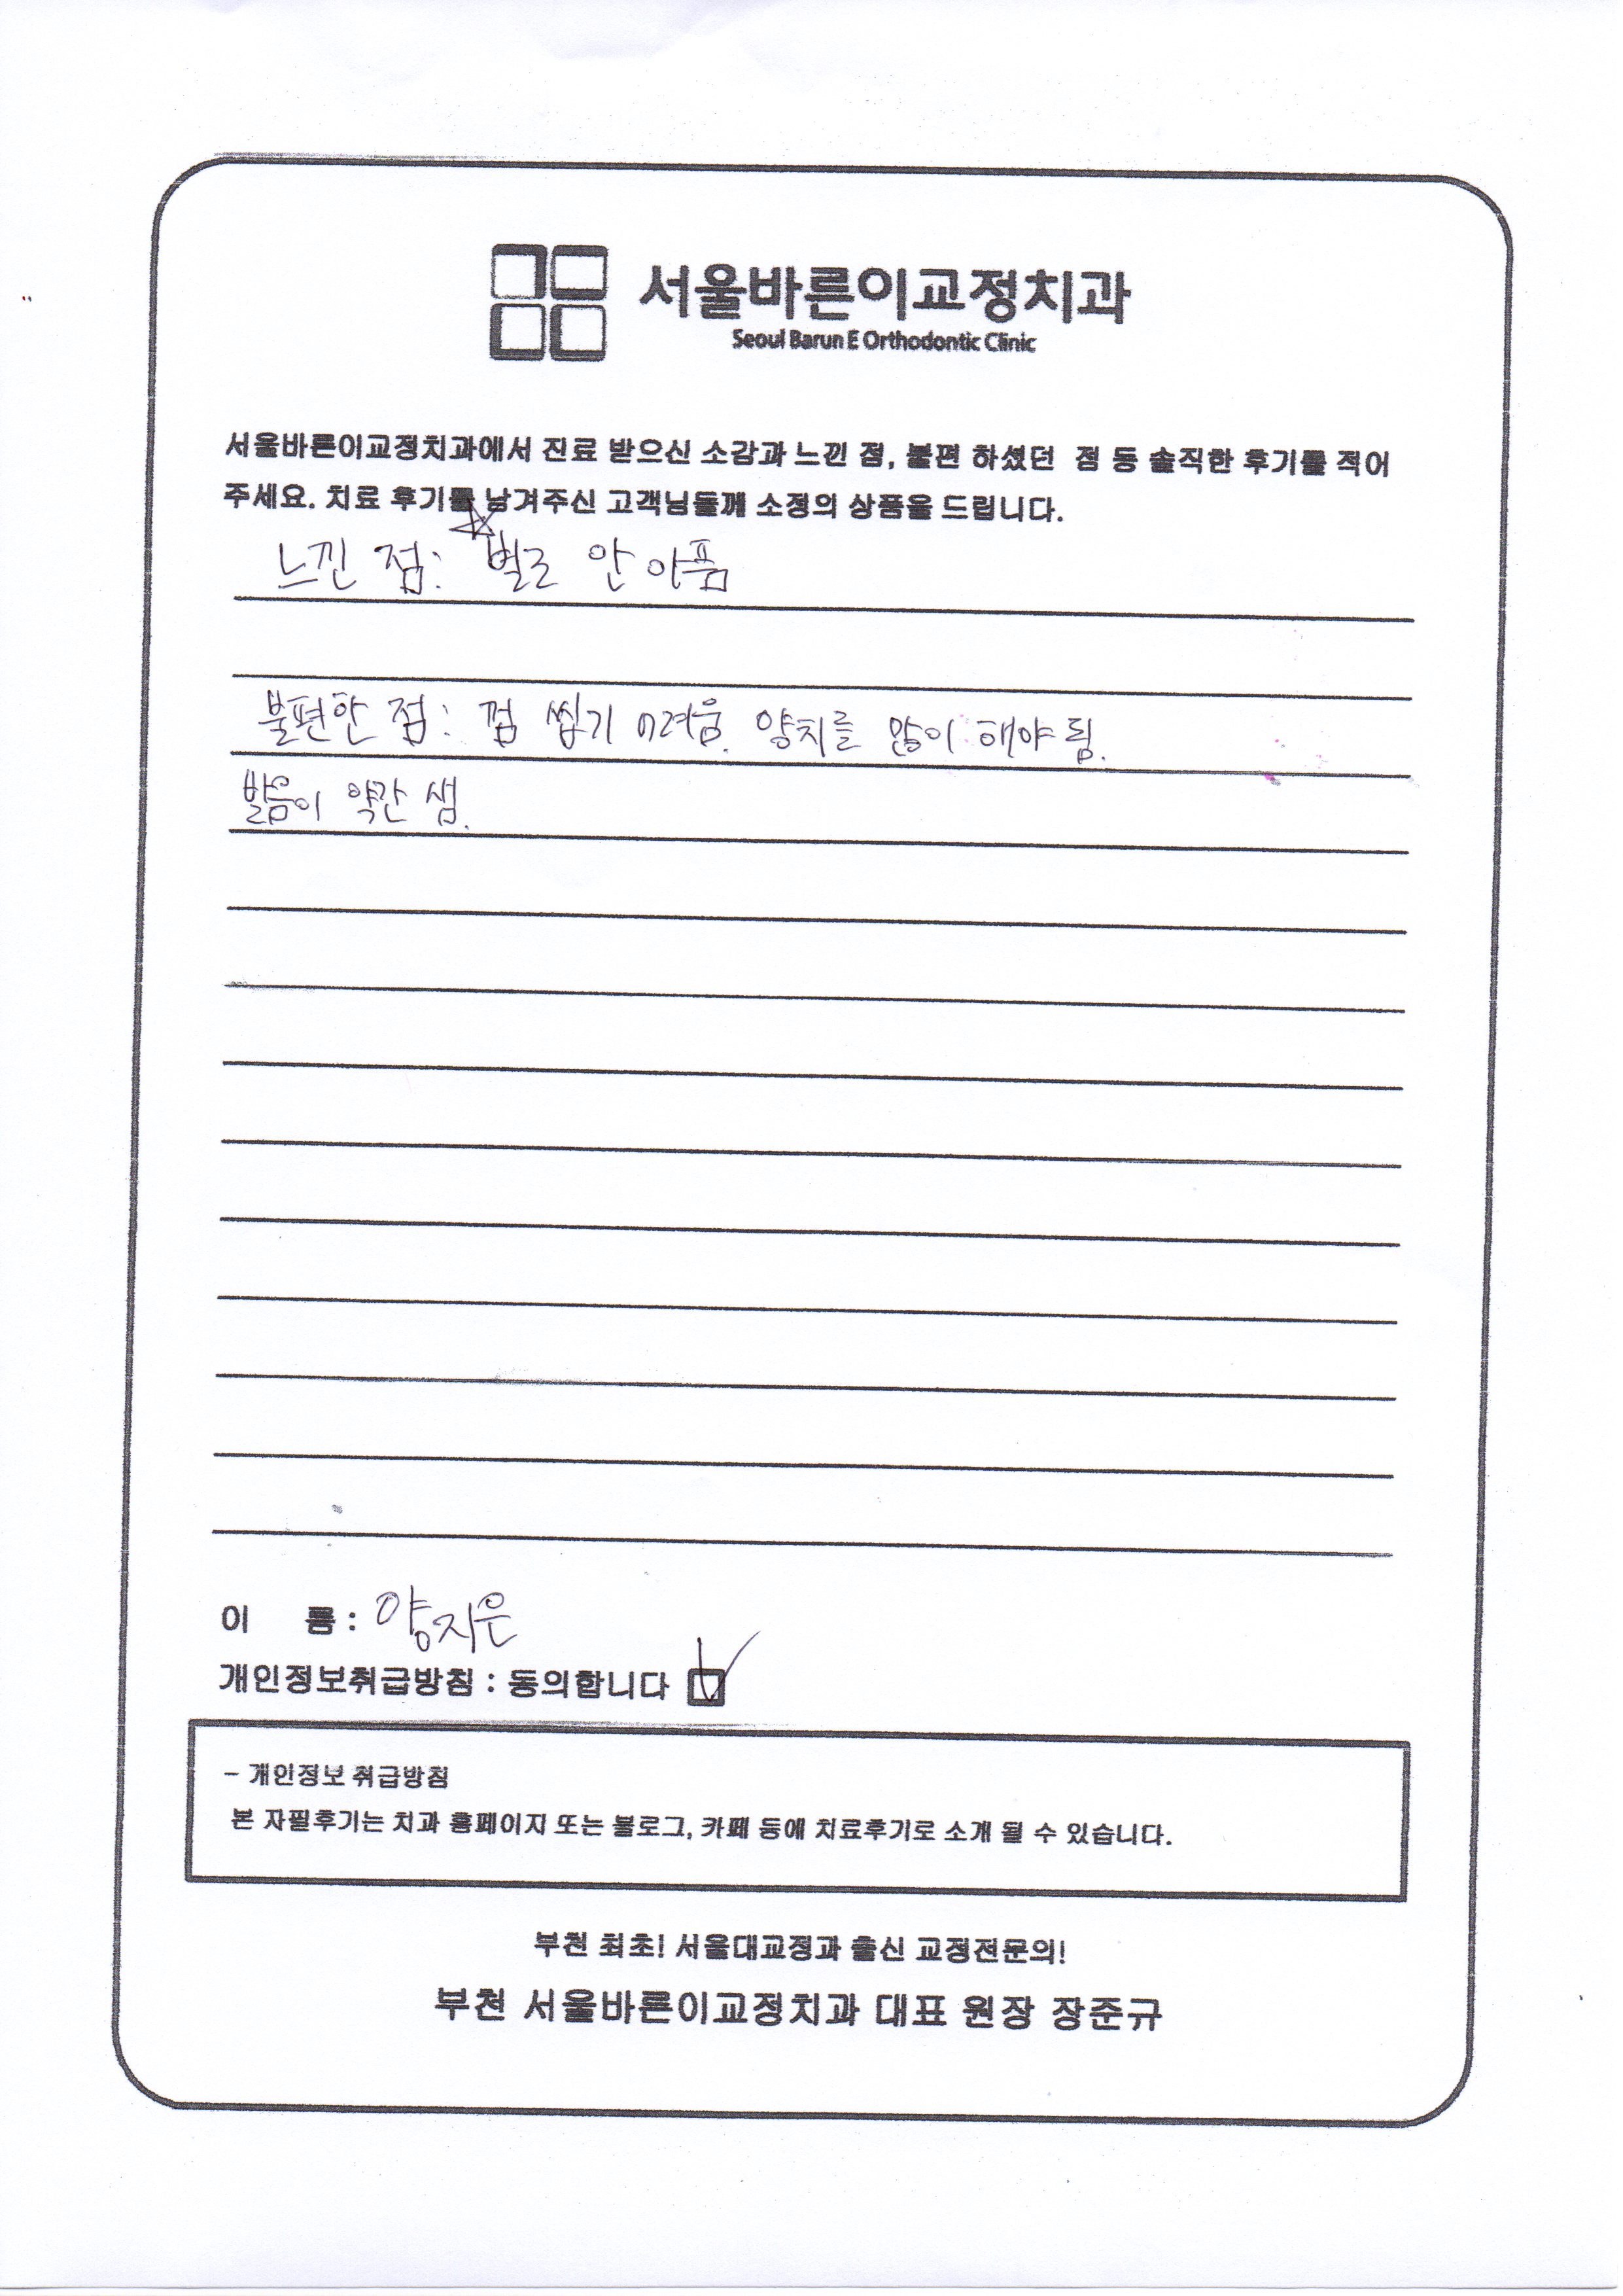 서울바른이교정치과
Seoul Barun E Orthodontic Clinic
서울바른이교정치과에서 진료 받으신 소감과 느낀 점, 불편 하셨던 점 등 솔직한 후기를 적어
주세요. 치료 후기를 남겨주신 고객님들께 소정의 상품을 드립니다.
느낀 점: 별로 안 아픔
불편한 점: 껌 씹기 어려움. 양치를 많이 해야 됨.
발음이 약간 샘.
이 름 : 양지은
개인정보취급방침 : 동의합니다
- 개인정보 취급방침
본 자필후기는 치과 홈페이지 또는 블로그, 카페 등에 치료후기로 소개 될 수 있습니다.
부천 최초! 서울대교정과 출신 교정전문의!
부천 서울바른이교정치과 대표 원장 장준규